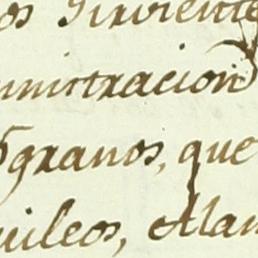 os Sirviente
ministracion
granos, que
uileos, Alam